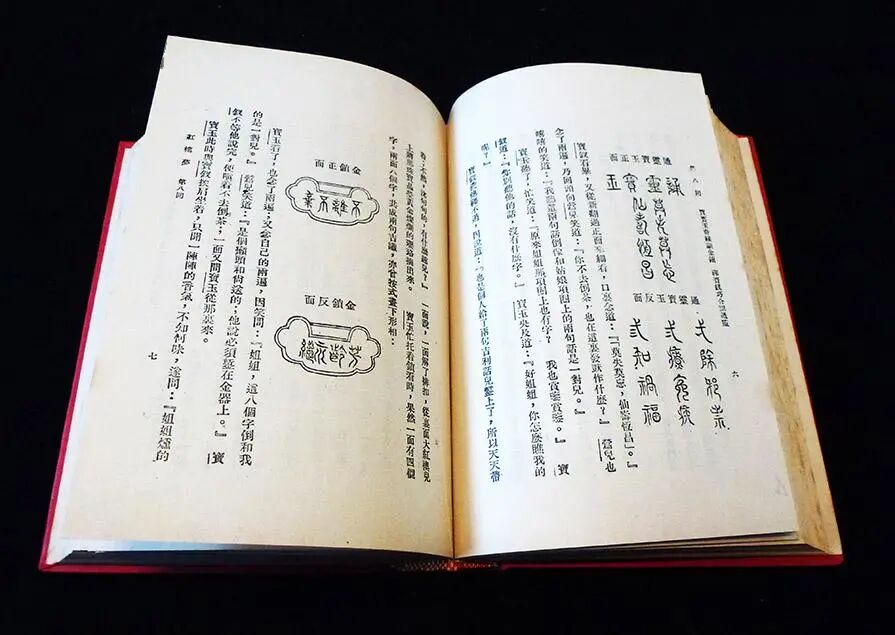 第八回 賈寶玉奇緣識金鎖 薛寶釵巧合認通靈
六
通靈寶玉正面
通靈寶玉
莫失莫忘
仙壽恆昌
通靈寶玉反面
一除邪祟
二療冤疾
三知禍福
寶釵看畢，又從新翻過正面來細看，口裏念道：『莫失莫忘，仙壽恆昌。』
念了兩遍，乃回頭向鶯兒笑道：『你不去倒茶，也在這裏發獃作什麼？』鶯兒也
嘻嘻的笑道：『我聽這兩句話倒像和姑娘項圈上的兩句話是一對兒。』
寶玉聽了，忙笑道：『原來姐姐那項圈上也有字？我也賞鑒賞鑒。』寶
釵道：『你別聽他的話，沒有什麼字。』寶玉央及道：『好姐姐，你怎麼瞧我的
呢？』
寶釵被他纏不過，因說道：『也是個人給了兩句吉利話兒鏨上了，所以天天帶
着；不然，沉甸甸的，有什麼趣兒？』一面說，一面解了排扣，從裏面大紅襖兒
上將那珠寶晶瑩黃金燦爛的瓔珞摘出來。寶玉忙托着鎖看時，果然一面有四個
字，兩面八個字，共成兩句吉讖，亦曾按式畫下形相：
金鎖正面
不離不棄
金鎖反面
芳齡永繼
寶玉看了，也念了兩遍，又念自己的兩遍，因笑問：『姐姐，這八個字倒和我
的是一對兒。』鶯兒笑道：『是個癩頭和尚送的；他說必須鏨在金器上。』寶
釵不等他說完，便嗔着不去倒茶，一面又問寶玉從那裏來。
寶玉此時與寶釵挨肩坐着，只聞一陣陣的香氣，不知何味，遂問：『姐姐燻的
紅樓夢 第八回
七